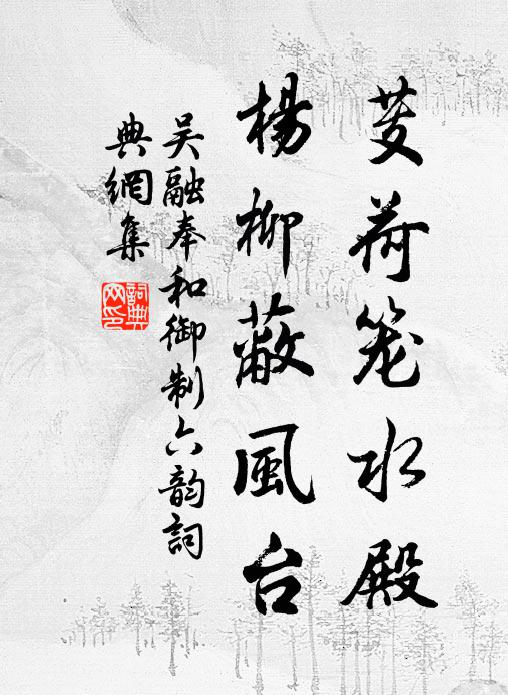 芰荷笼水殿
杨柳蔽風台
吴融奉和御制六韵詞
典網集
詞典网印